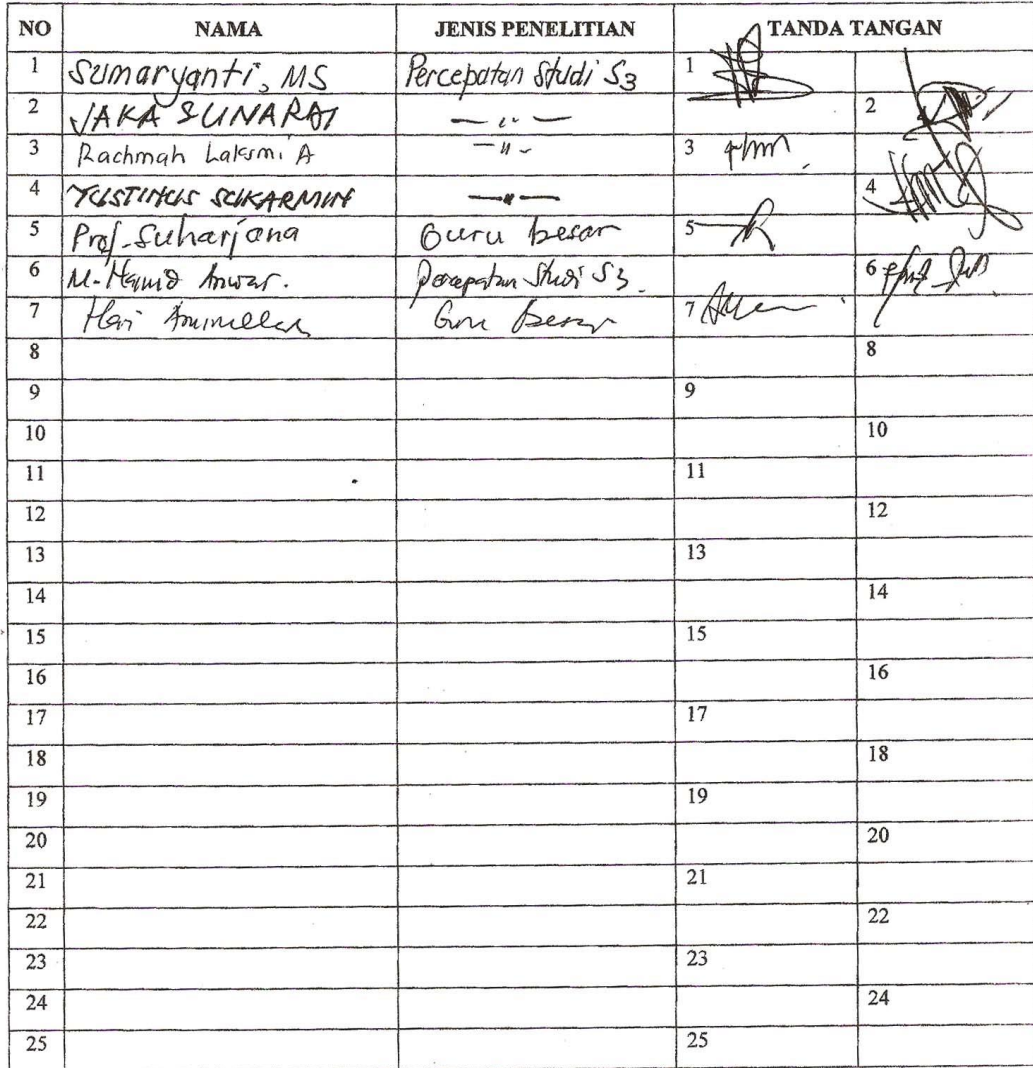 NO NAMA JENIS PENELITIAN TANDA TANGAN
1 Sumaryanti, MS Percepatan Studi S3 1
2 JAKA SUNARDI — " — 2
3 Rachmah Laksmi A — " — 3
4 YUSTINUS SUKARMIN — " — 4
5 Prof. Suharjana Guru besar 5
6 M. Hamid Anwar. Percepatan Studi S3. 6
7 Hari Guru Besar 7
8 8
9 9
10 10
11 11
12 12
13 13
14 14
15 15
16 16
17 17
18 18
19 19
20 20
21 21
22 22
23 23
24 24
25 25